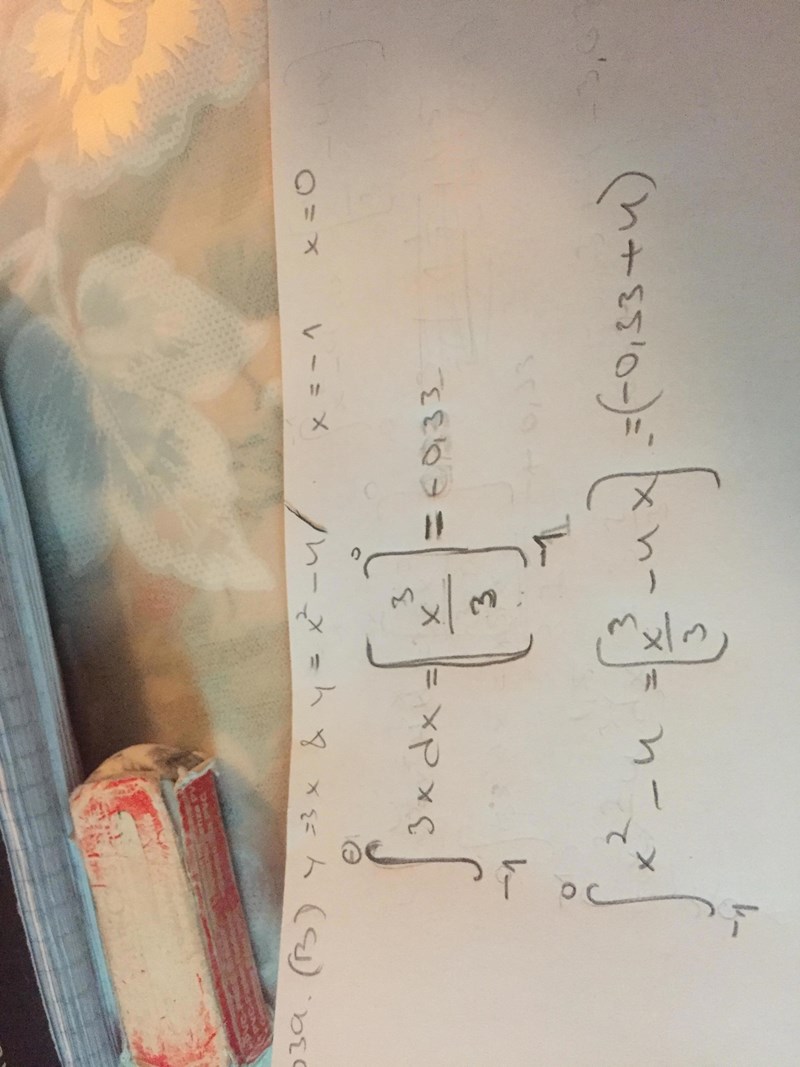 03a. (B) y=3x & y=x²-4/ x=-1 x=0
∫₋₁⁰ 3x dx = [x³/3]₋₁⁰ = -0,33
∫₋₁⁰ x²-4 = [x³/3 - 4x] = (-0,33+4)